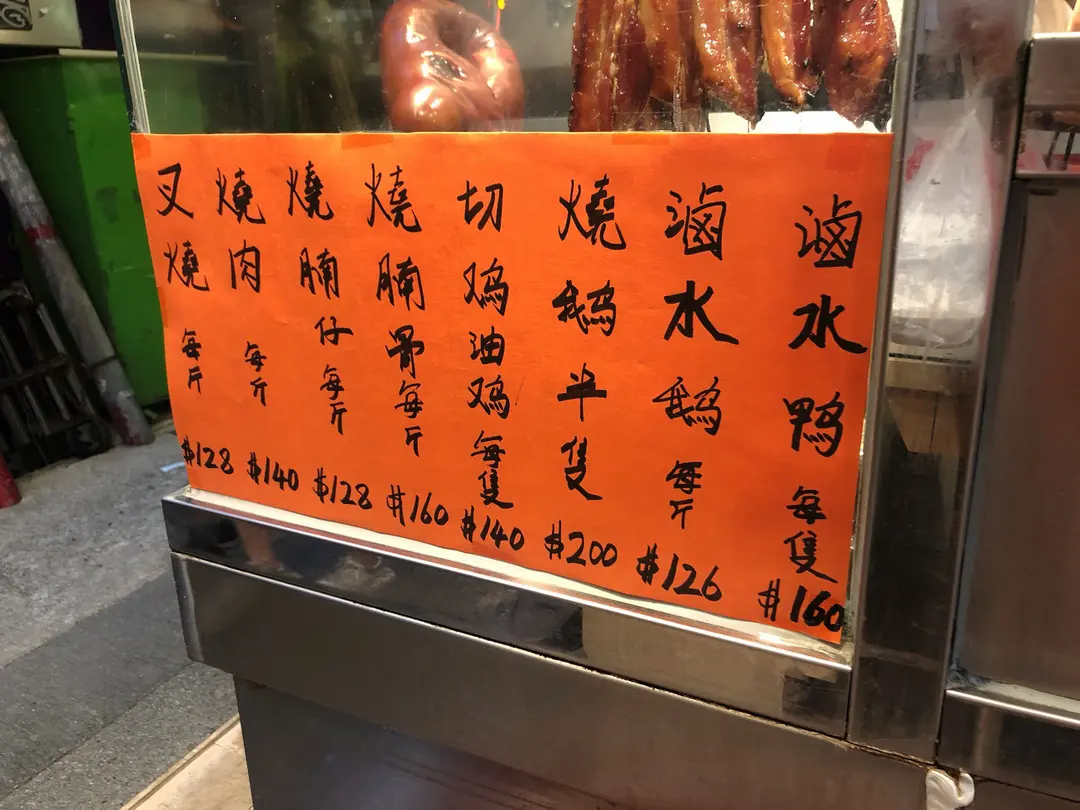 滷水鴨每隻 $160
滷水鵝每斤 $126
燒鵝半隻 $200
切鸡油鸡每隻 $140
燒腩骨每斤 $160
燒腩仔每斤 $128
燒肉每斤 $140
叉燒每斤 $128